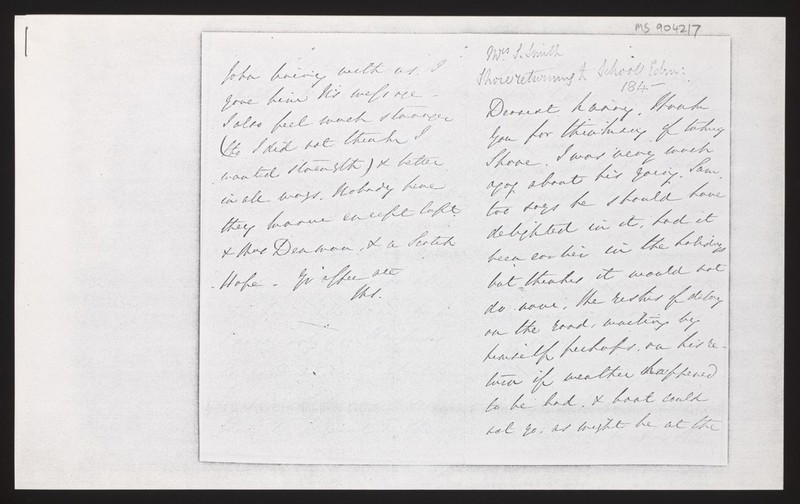 MS 9042/7
John being with us. I
gave him his message -
I also feel much stronger
(tho I did not think I
wanted strength) & better
in all ways. Nobody here
they know except Capt
& Mrs Denman, & a Scotch
Hope - Yr affec
Mrs S. Smith
Shore returning to School Edin:
184-
Dearest Fanny, Thank
you for thinking of taking
Shore. I was very much
agog about his going. Sam
too says he should have
delighted in it, had it
been earlier in the holidays
but thinks it would not
do now, the risks of delay
on the road, waiting by
himself perhaps, on his re-
turn if weather happened
to be bad. & boat could
not go. as might be at the